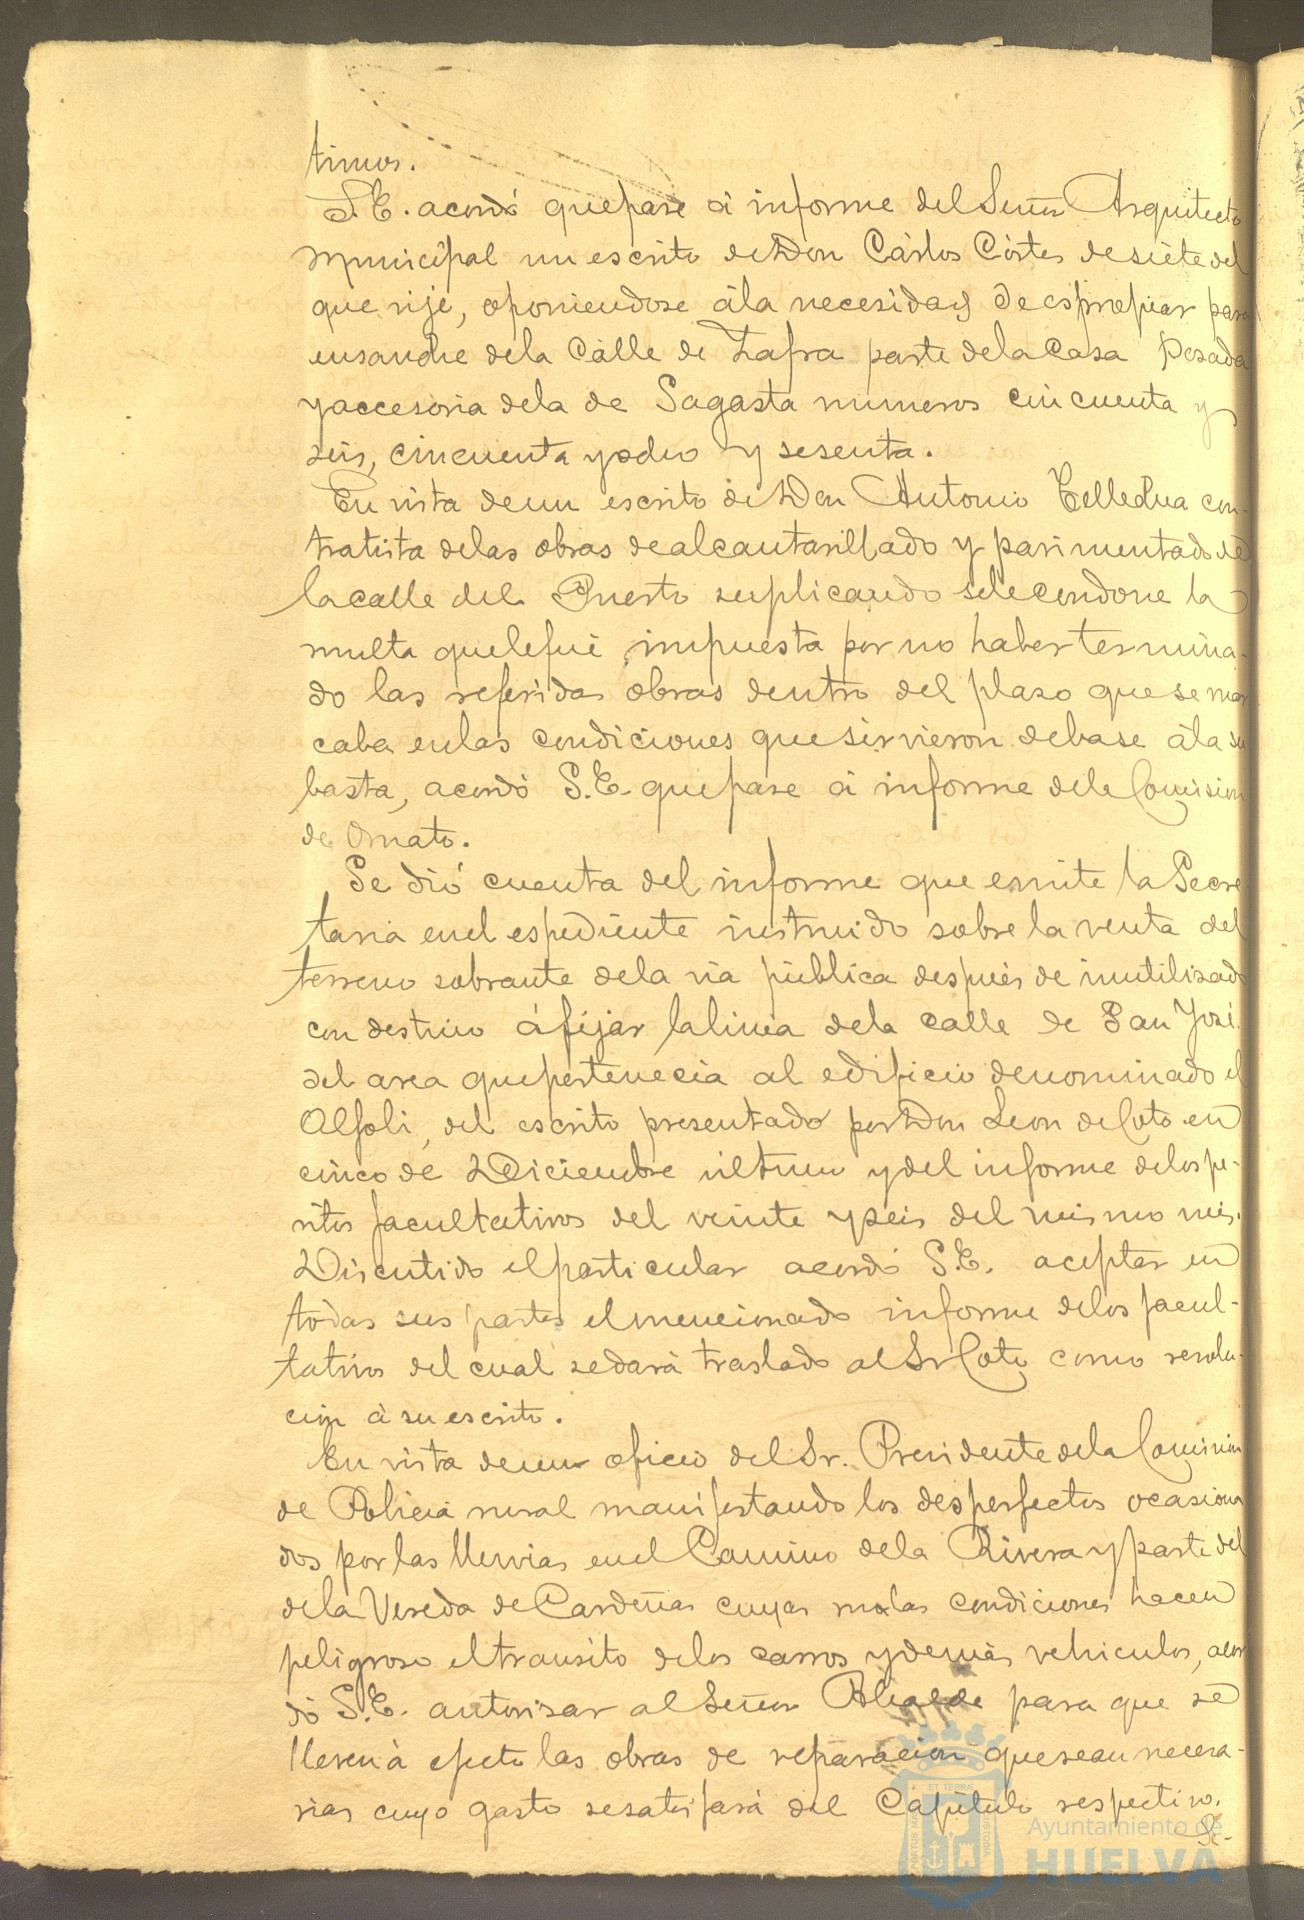 timos.
S.E. acordó que pase á informe del Señor Arquitecto
Municipal un escrito de Don Cárlos Córtes de siete del
que rije, oponiendose á la necesidad de espropiar para
ensanche de la Cálle de Zafra parte de la Casa Posada
y accesoria de la de Sagasta numeros cincuenta y
seis, cincuenta y ocho y sesenta.
En vista de un escrito de Don Antonio con-
tratista de las obras de alcantarillado y pavimentado de
la calle del Puerto suplicando se le condone la
multa que le fué impuesta por no haber termina-
do las referidas obras dentro del plazo que se mar
caba en las condiciones que sirvieron de base á la su
basta, acordó S.E. que pase á informe de la Comision
de Ornato.
Se dió cuenta del informe que emite la Secre
taria en el espediente instruido sobre la venta del
terreno sobrante de la via pública después de inutilizado
con destino á fijar la linea de la calle de San José
del area que pertenecia al edificio denominado el
Alfoli, del escrito presentado por Don Leon de Coto en
cinco de Diciembre último y del informe de los pe-
ritos facultativos del veinte y seis del mismo mes.
Discutido el particular acordó S.E. aceptar en
todas sus partes el mencionado informe de los facul-
tativos del cual se dará traslado al Sr Coto como resolu-
cion á su escrito.
En vista de un oficio del Sr. Presidente de la Comision
de Policia rural manifestando los desperfectos ocasiona
dos por las lluvias en el Camino de la Rivera y parte del
de la Vereda de Cardeñas cuyas malas condiciones hacen
peligroso el transito de los carros y demás vehiculos, acor
dó S.E. autorizar al Señor Alcalde para que se
lleven á efecto las obras de reparacion que sean necesa-
rias cuyo gasto se satisfará del Capítulo respectivo.
Se-
Ayuntamiento de
HUELVA